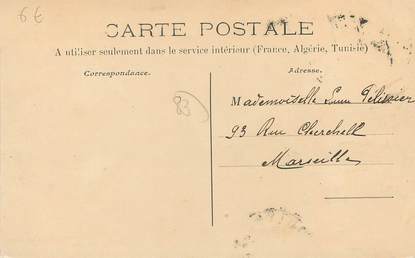 6€
CARTE POSTALE
A utiliser seulement dans le service intérieur (France, Algérie, Tunisie)
Correspondance.
Adresse.
83
Mademoiselle Pélissier
93 Rue Cherchell
Marseille